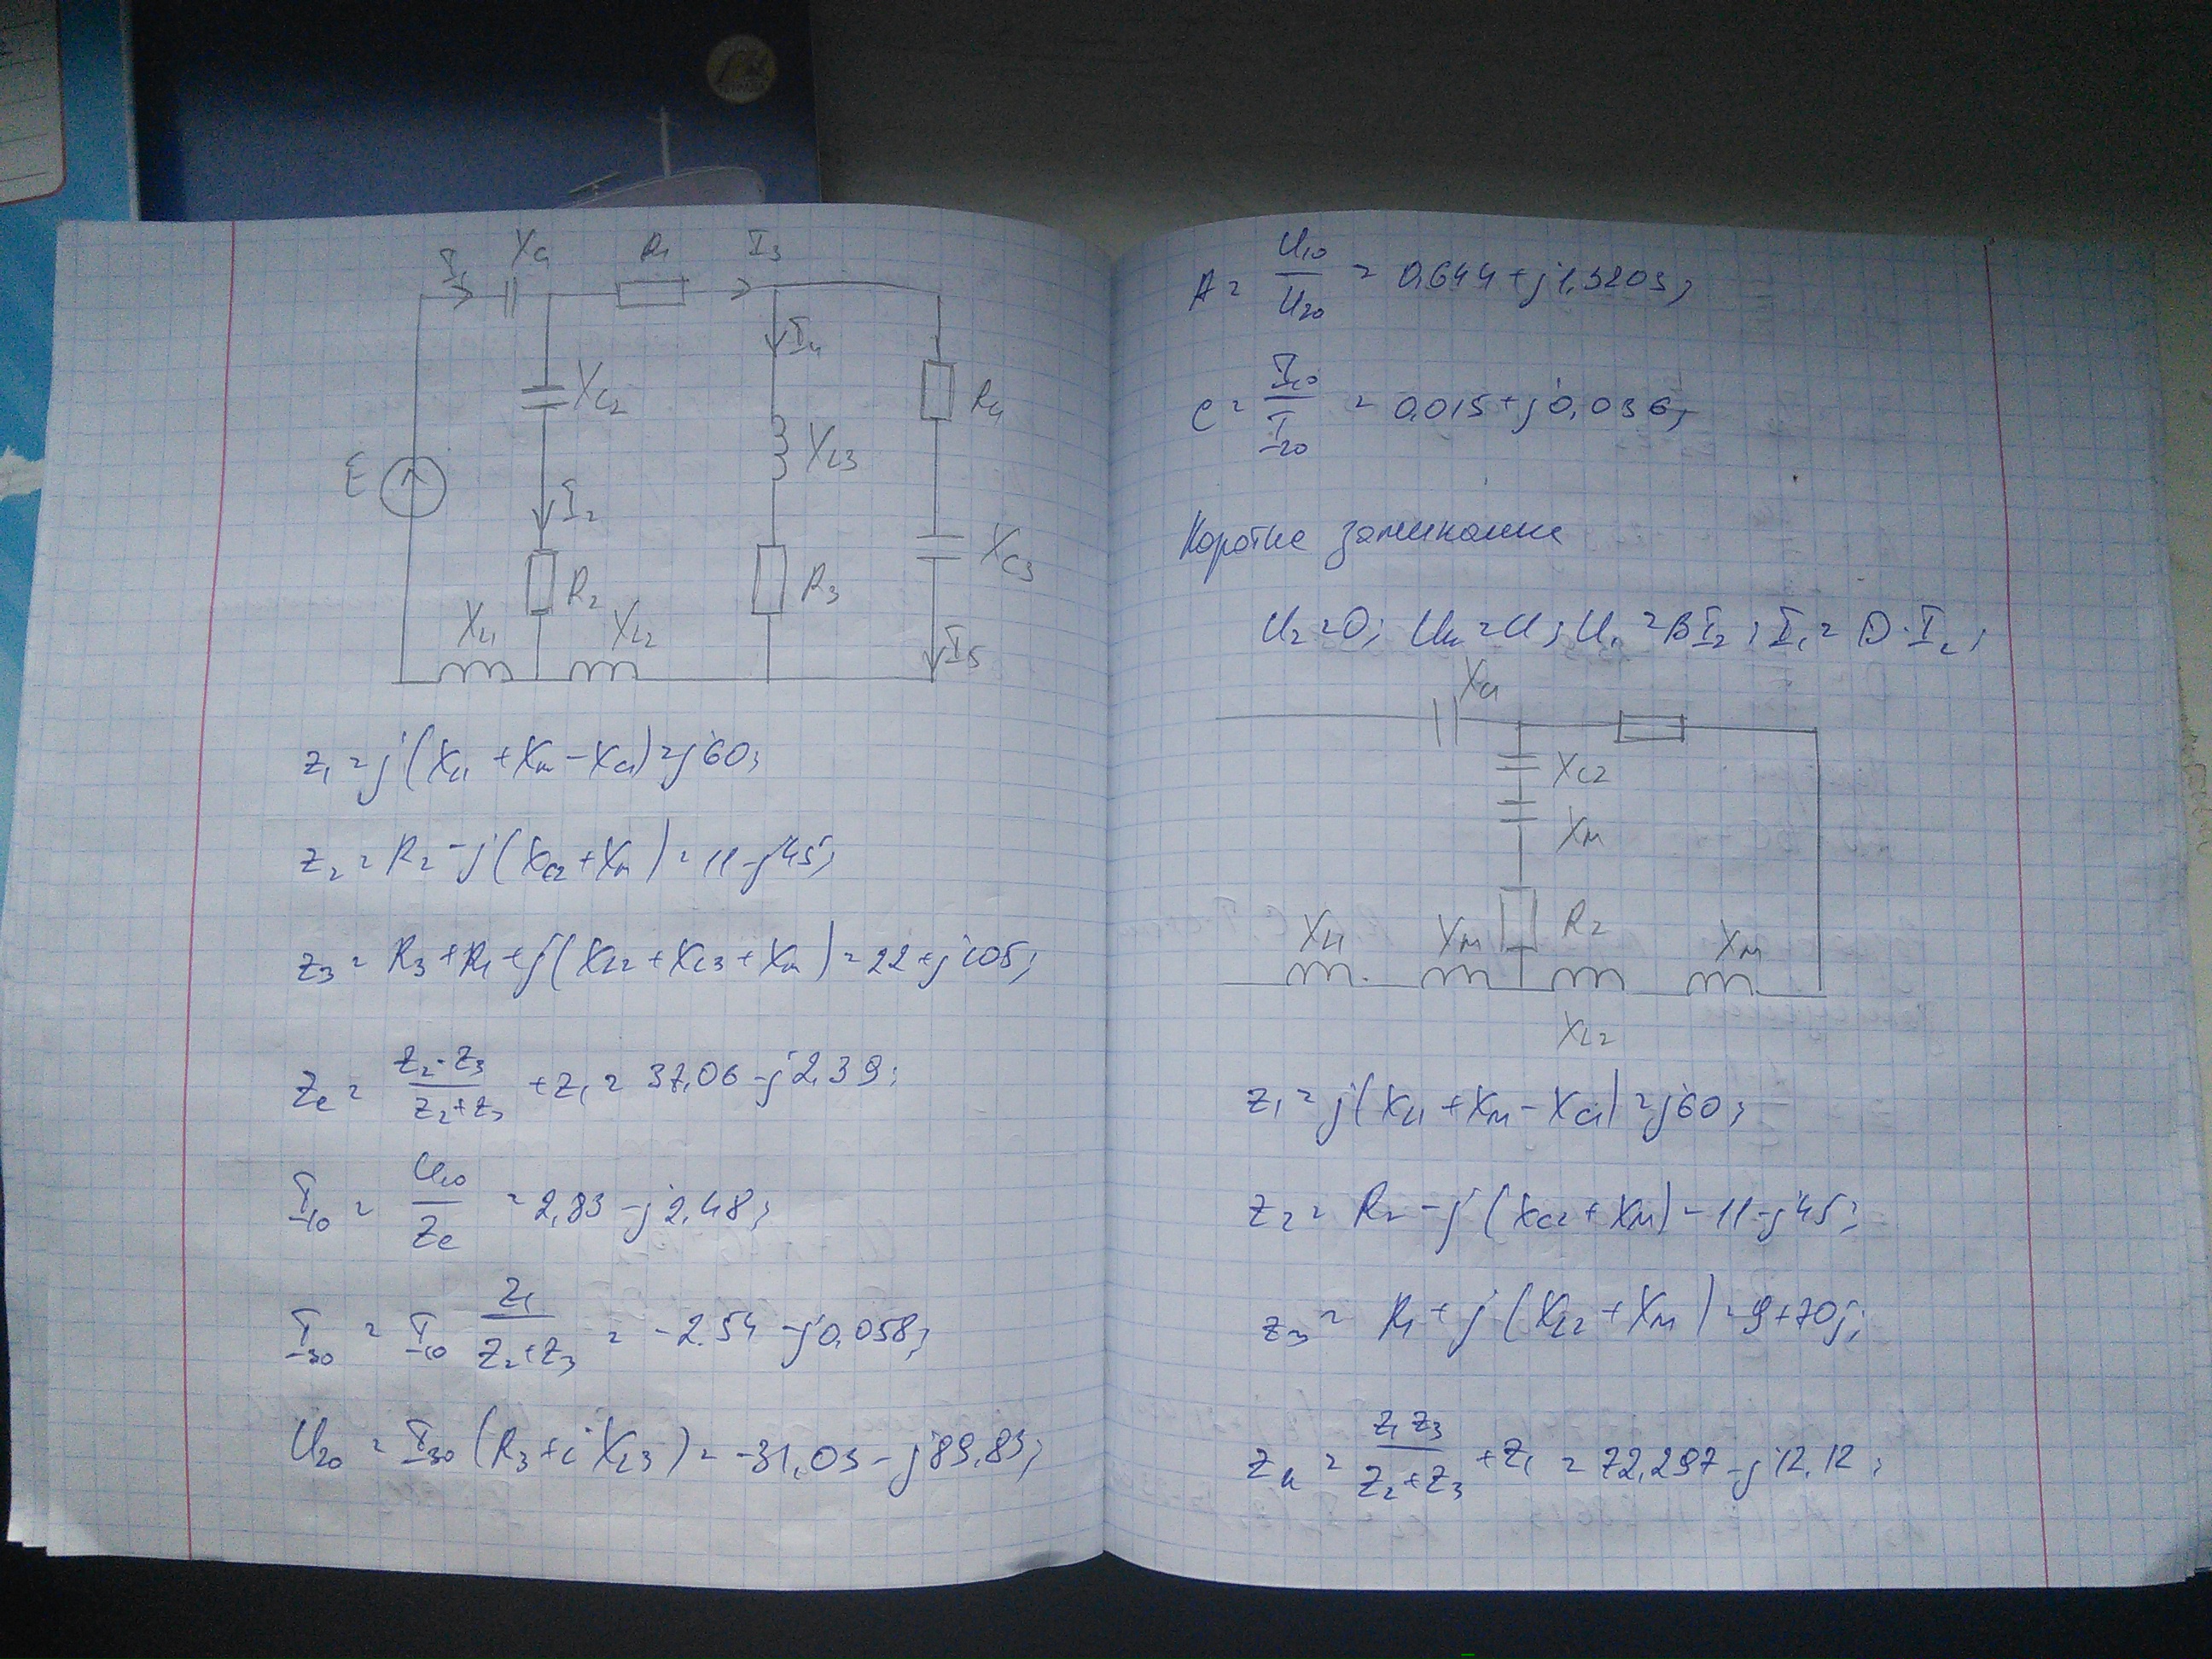 I₁ X_C1 R₁ I₃
I₄
X_C2 R₄
X_L3
E
I₂
X_C3
R₂ R₃
X_L1 X_L2
I₅
Z₁ = j(X_L1 + X_M − X_C1) = j60;
Z₂ = R₂ − j(X_C2 + X_M) = 11 − j45;
Z₃ = R₃ + R₁ + j(X_L2 + X_L3 + X_M) = 22 + j105;
Z_e = Z₂·Z₃ / (Z₂+Z₃) + Z₁ = 37,06 − j2,39;
I₁₀ = U₁₀ / Z_e = 2,83 − j2,48;
I₃₀ = I₁₀ Z₁ / (Z₂+Z₃) = −2.54 − j0,058;
U₂₀ = I₃₀ (R₃ + i X_L3) = −31,03 − j89,83;
A = U₁₀ / U₂₀ = 0,644 + j1,3203;
C = I₁₀ / I₂₀ = 0,015 + j0,036;
Коротке замикання
U₂ = 0; U_к = U; U₁ = BI₂; I₁ = D·I₂;
X_C1
X_C2
X_M
R₂
X_L1 X_M X_M
X_L2
Z₁ = j(X_L1 + X_M − X_C1) = j60;
Z₂ = R₂ − j(X_C2 + X_M) = 11 − j45;
Z₃ = R₁ + j(X_L2 + X_M) = 9 + 70j;
Z_к = Z₁ Z₃ / (Z₂+Z₃) + Z₁ = 72,297 − j12,12;